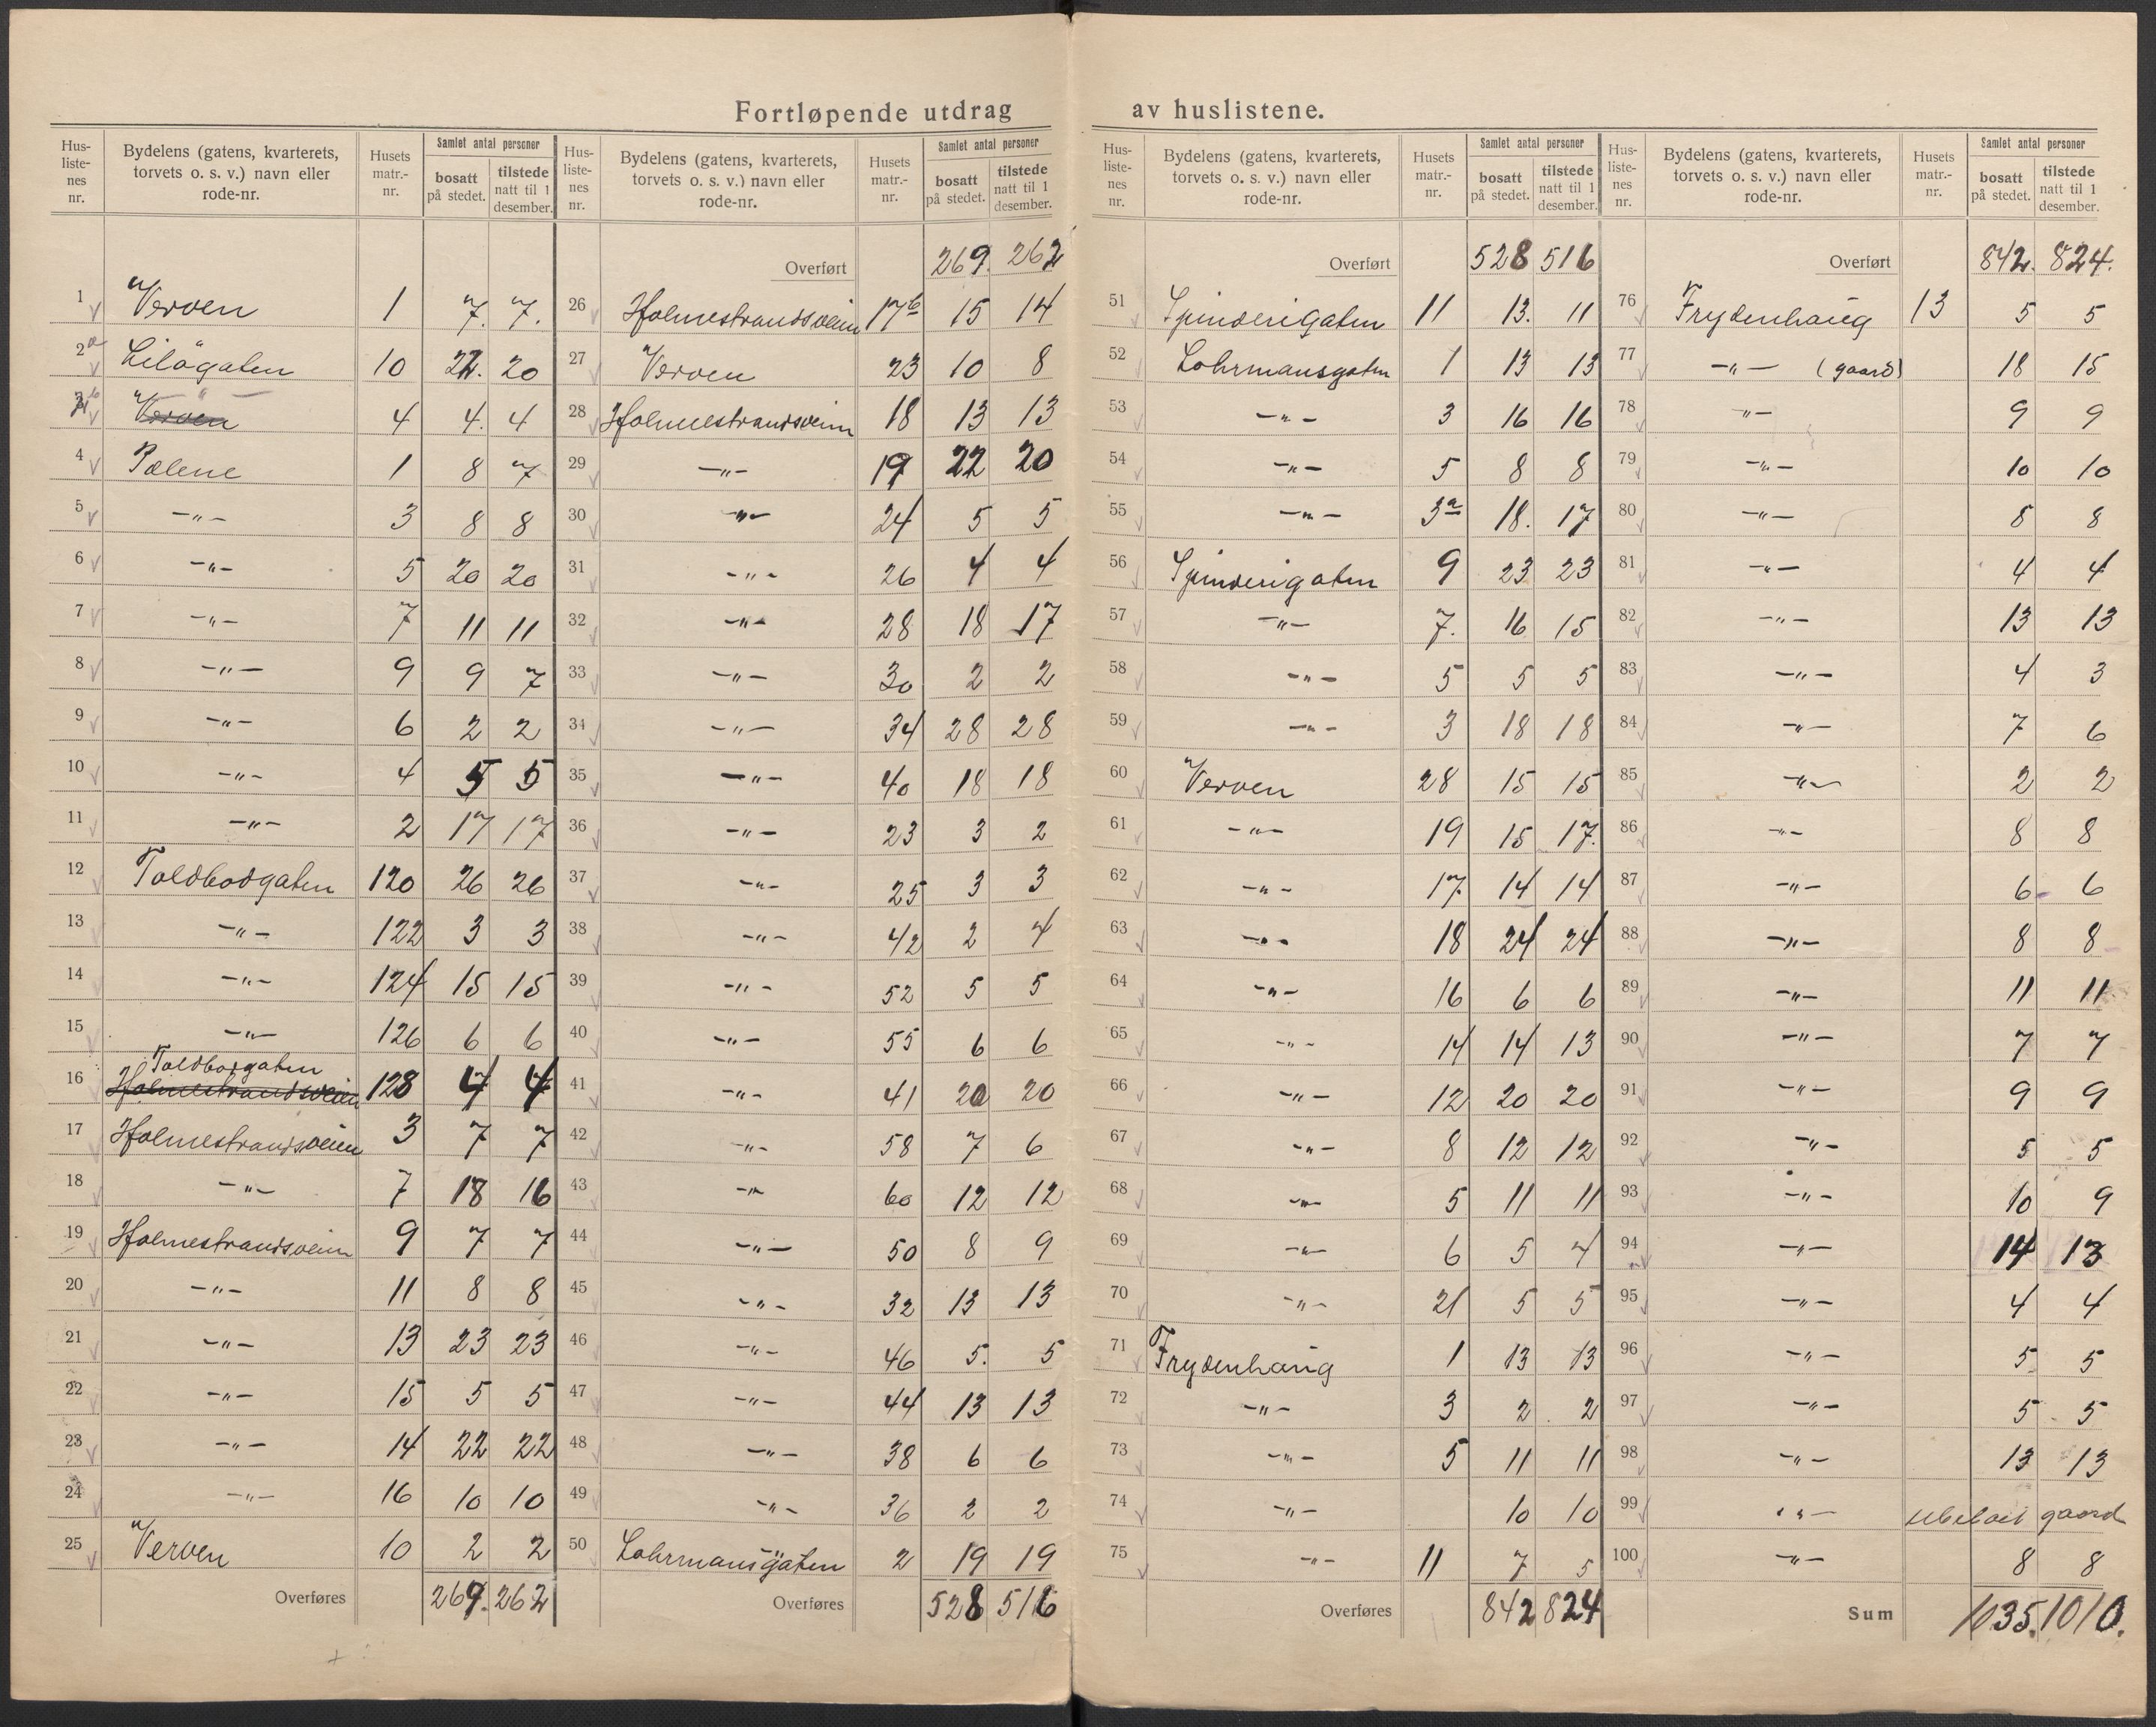 Fortløpende utdrag av huslistene.
Hus-liste-nes nr. | Bydelens (gatens, kvarterets, torvets o. s. v.) navn eller rode-nr. | Husets matr.-nr. | Samlet antal personer | bosatt på stedet. | tilstede natt til 1 desember.
1 Verven 1 7. 7.
2a Liløgaten 10 22. 20
3 b " Verven 4 4. 4
4 Pælene 1 8 7
5 -"- 3 8 8
6 -"- 5 20 20
7 -"- 7 11 11
8 -"- 9 9 7
9 -"- 6 2 2
10 -"- 4 5 5
11 -"- 2 17 17
12 Toldbodgaten 120 26 26
13 -"- 122 3 3
14 -"- 124 15 15
15 -"- 126 6 6
Toldbodgaten
16 Holmestrandsveien 128 4 4
17 Holmestrandsveien 3 7 7
18 -"- 7 18 16
19 Holmestrandsveien 9 7 7
20 -"- 11 8 8
21 -"- 13 23 23
22 -"- 15 5 5
23 -"- 14 22 22
24 -"- 16 10 10
25 Verven 10 2 2
Overføres 269. 262
Hus-liste-nes nr. | Bydelens (gatens, kvarterets, torvets o. s. v.) navn eller rode-nr. | Husets matr.-nr. | Samlet antal personer | bosatt på stedet. | tilstede natt til 1 desember.
Overført 269. 262
26 Holmestrandsveien 17b 15 14
27 Verven 23 10 8
28 Holmestrandsveien 18 13 13
29 -"- 19 22 20
30 -"- 24 5 5
31 -"- 26 4 4
32 -"- 28 18 17
33 -"- 30 2 2
34 -"- 34 28 28
35 -"- 40 18 18
36 -"- 23 3 2
37 -"- 25 3 3
38 -"- 42 2 4
39 -"- 52 5 5
40 -"- 55 6 6
41 -"- 41 20 20
42 -"- 58 7 6
43 -"- 60 12 12
44 -"- 50 8 9
45 -"- 32 13 13
46 -"- 46 5. 5
47 -"- 44 13 13
48 -"- 38 6 6
49 -"- 36 2 2
50 Lohrmansgaten 2 19 19
Overføres 528 516
Hus-liste-nes nr. | Bydelens (gatens, kvarterets, torvets o. s. v.) navn eller rode-nr. | Husets matr.-nr. | Samlet antal personer | bosatt på stedet. | tilstede natt til 1 desember.
Overført 528 516
51 Spinderigaten 11 13. 11
52 Lohrmansgaten 1 13 13
53 -"- 3 16 16
54 -"- 5 8 8
55 -"- 3a 18. 17
56 Spinderigaten 9 23 23
57 -"- 7. 16 15
58 -"- 5 5 5
59 -"- 3 18 18
60 Verven 28 15 15
61 -"- 19 15 17.
62 -"- 17 14 14
63 -"- 18 24 24
64 -"- 16 6 6
65 -"- 14 14 13
66 -"- 12 20 20
67 -"- 8 12 12
68 -"- 5 11 11
69 -"- 6 5 4
70 -"- 21 5 5
71 Frydenhaug 1 13 13
72 -"- 3 2 2
73 -"- 5 11 11
74 -"- 10 10
75 -"- 11 7 5
Overføres 842 824
Hus-liste-nes nr. | Bydelens (gatens, kvarterets, torvets o. s. v.) navn eller rode-nr. | Husets matr.-nr. | Samlet antal personer | bosatt på stedet. | tilstede natt til 1 desember.
Overført 842. 824.
76 Frydenhaug 13 5 5
77 -"- (gaard) 18 15
78 -"- 9 9
79 -"- 10 10
80 -"- 8 8
81 -"- 4 4
82 -"- 13 13
83 -"- 4 3
84 -"- 7 6
85 -"- 2 2
86 -"- 8 8
87 -"- 6 6
88 -"- 8 8
89 -"- 11 11
90 -"- 7 7
91 -"- 9 9
92 -"- 5 5
93 -"- 10 9
94 -"- 14 13
95 -"- 4 4
96 -"- 5 5
97 -"- 5 5
98 -"- 13 13
99 -"- gaard
100 -"- 8 8
Sum 1035. 1010.